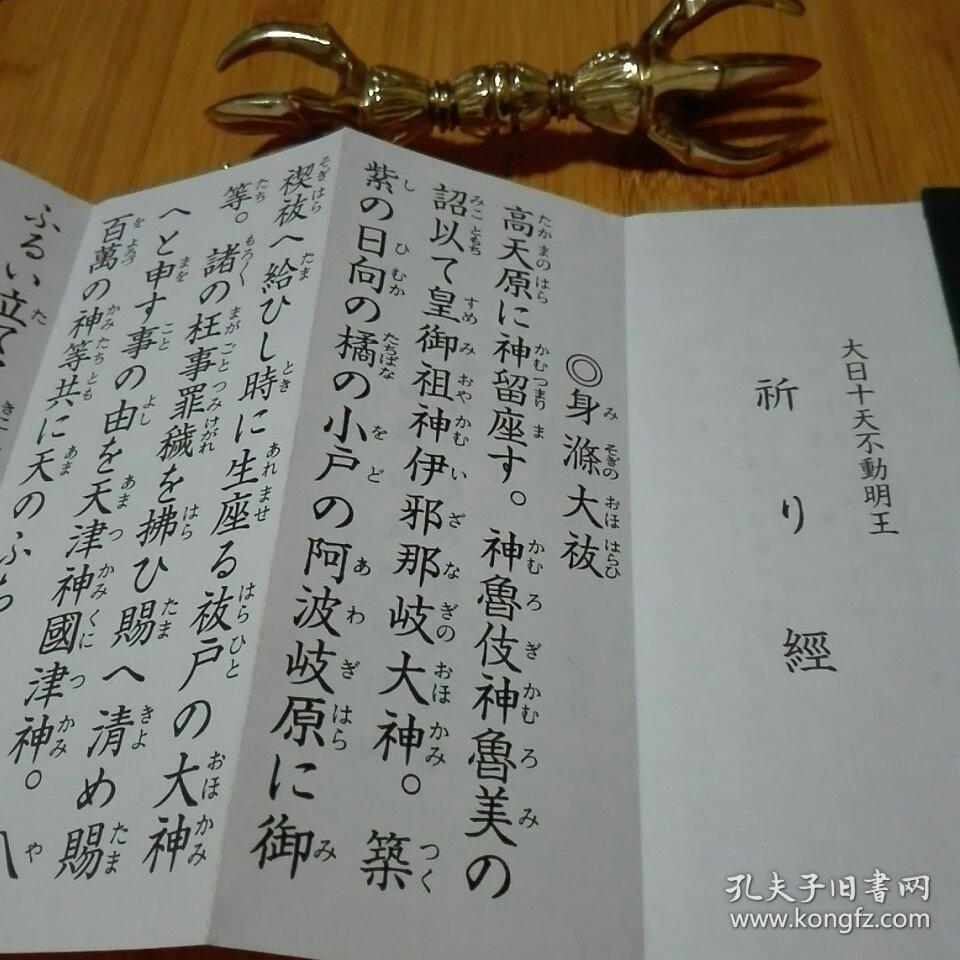 大日十天不動明王
祈り經
◎身滌大祓
高天原に神留座す。神魯伎神魯美の
詔以て皇御祖神伊邪那岐大神。築
紫の日向の橘の小戸の阿波岐原に御
禊祓へ給ひし時に生座る祓戸の大神
等。諸の枉事罪穢を拂ひ賜へ清め賜
へと申す事の由を天津神國津神。八
百萬の神等共に天のふち
ふるい立て
孔夫子旧书网
www.kongfz.com